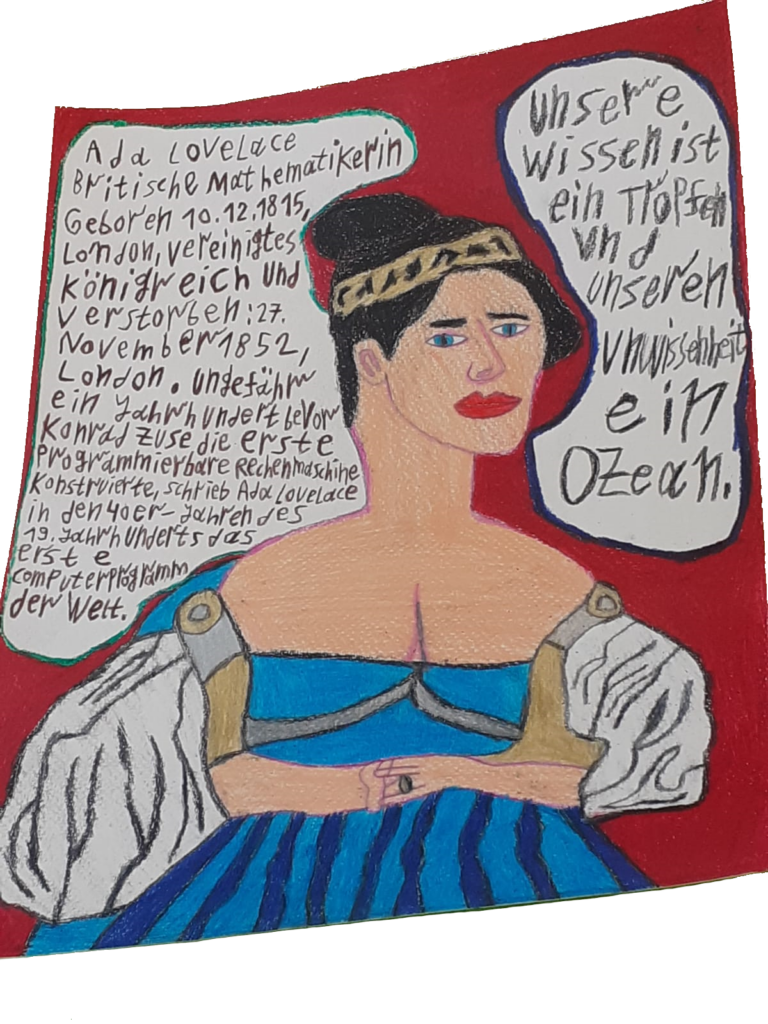 Ada Lovelace
Britische Mathematikerin
Geboren 10.12.1815,
London, vereinigtes
Königreich und
verstorben: 27.
November 1852,
London. ungefähr
ein Jahrhundert bevor
Konrad Zuse die erste
Programmierbare Rechenmaschine
Konstruierte, schrieb Ada Lovelace
in den 40er-Jahren des
19. Jahrhunderts das
erste
computerprogramm
der Welt.
unsere
wissen ist
ein Tröpfen
und
unseren
unwissenheit
ein
Ozean.